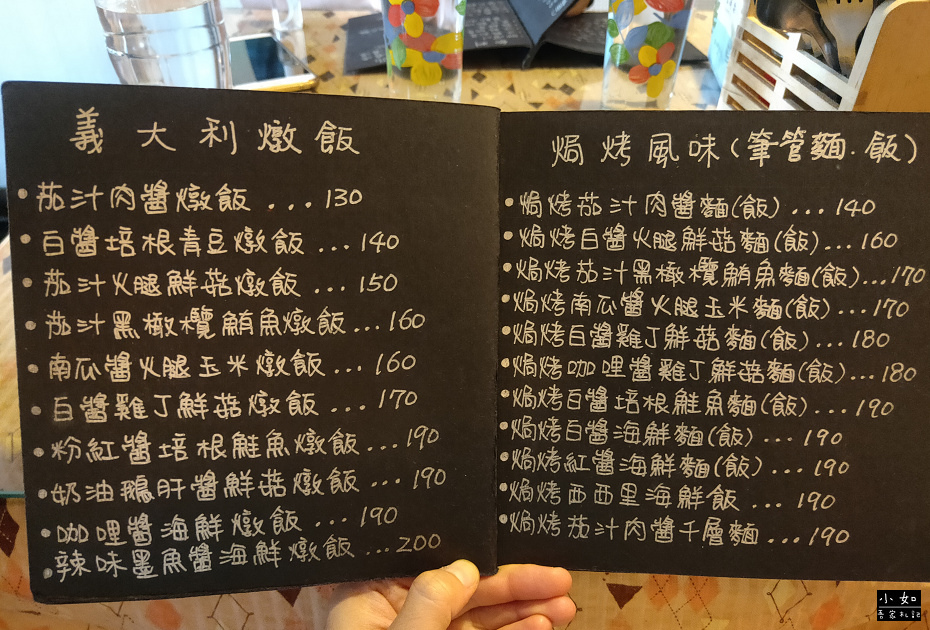 義大利燉飯
茄汁肉醬燉飯...130
白醬培根青豆燉飯...140
茄汁火腿鮮菇燉飯...150
茄汁黑橄欖鮪魚燉飯...160
南瓜醬火腿玉米燉飯...160
白醬雞丁鮮菇燉飯...170
粉紅醬培根鮭魚燉飯...190
奶油鵝肝醬鮮菇燉飯...190
咖哩醬海鮮燉飯...190
辣味墨魚醬海鮮燉飯...200
焗烤風味(筆管麵.飯)
焗烤茄汁肉醬麵(飯)...140
焗烤白醬火腿鮮菇麵(飯)...160
焗烤茄汁黑橄欖鮪魚麵(飯)...170
焗烤南瓜醬火腿玉米麵(飯)...170
焗烤白醬雞丁鮮菇麵(飯)...180
焗烤咖哩醬雞丁鮮菇麵(飯)...180
焗烤白醬培根鮭魚麵(飯)...190
焗烤白醬海鮮麵(飯)...190
焗烤紅醬海鮮麵(飯)...190
焗烤西西里海鮮飯...190
焗烤茄汁肉醬千層麵...190
小如
吾家札記